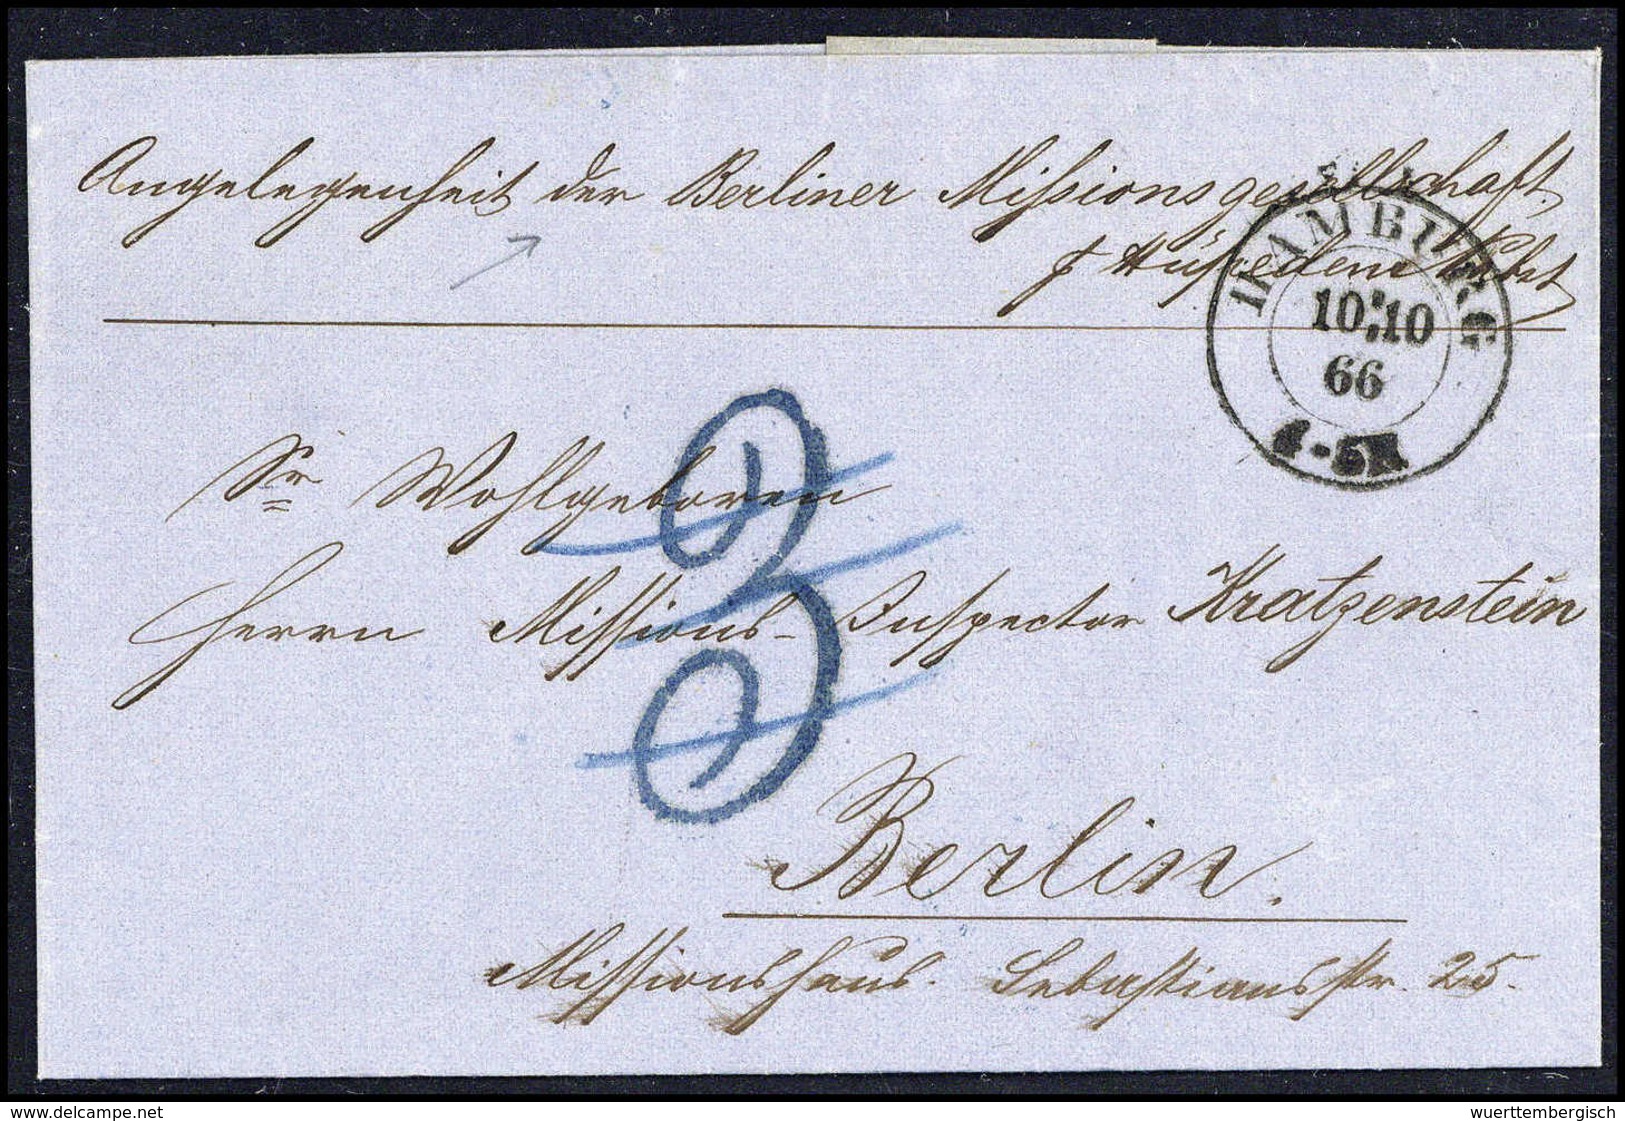 Angelegenheit der Berliner Missionsgesellschaft.
HAMBURG
10 10
66
4-5N
3
Sr Wohlgeboren
Herrn Missions-Inspector Kratzenstein
Berlin.
Missionshaus. Sebastiansstr. 25.
delcampe.net
wuerttembergisch